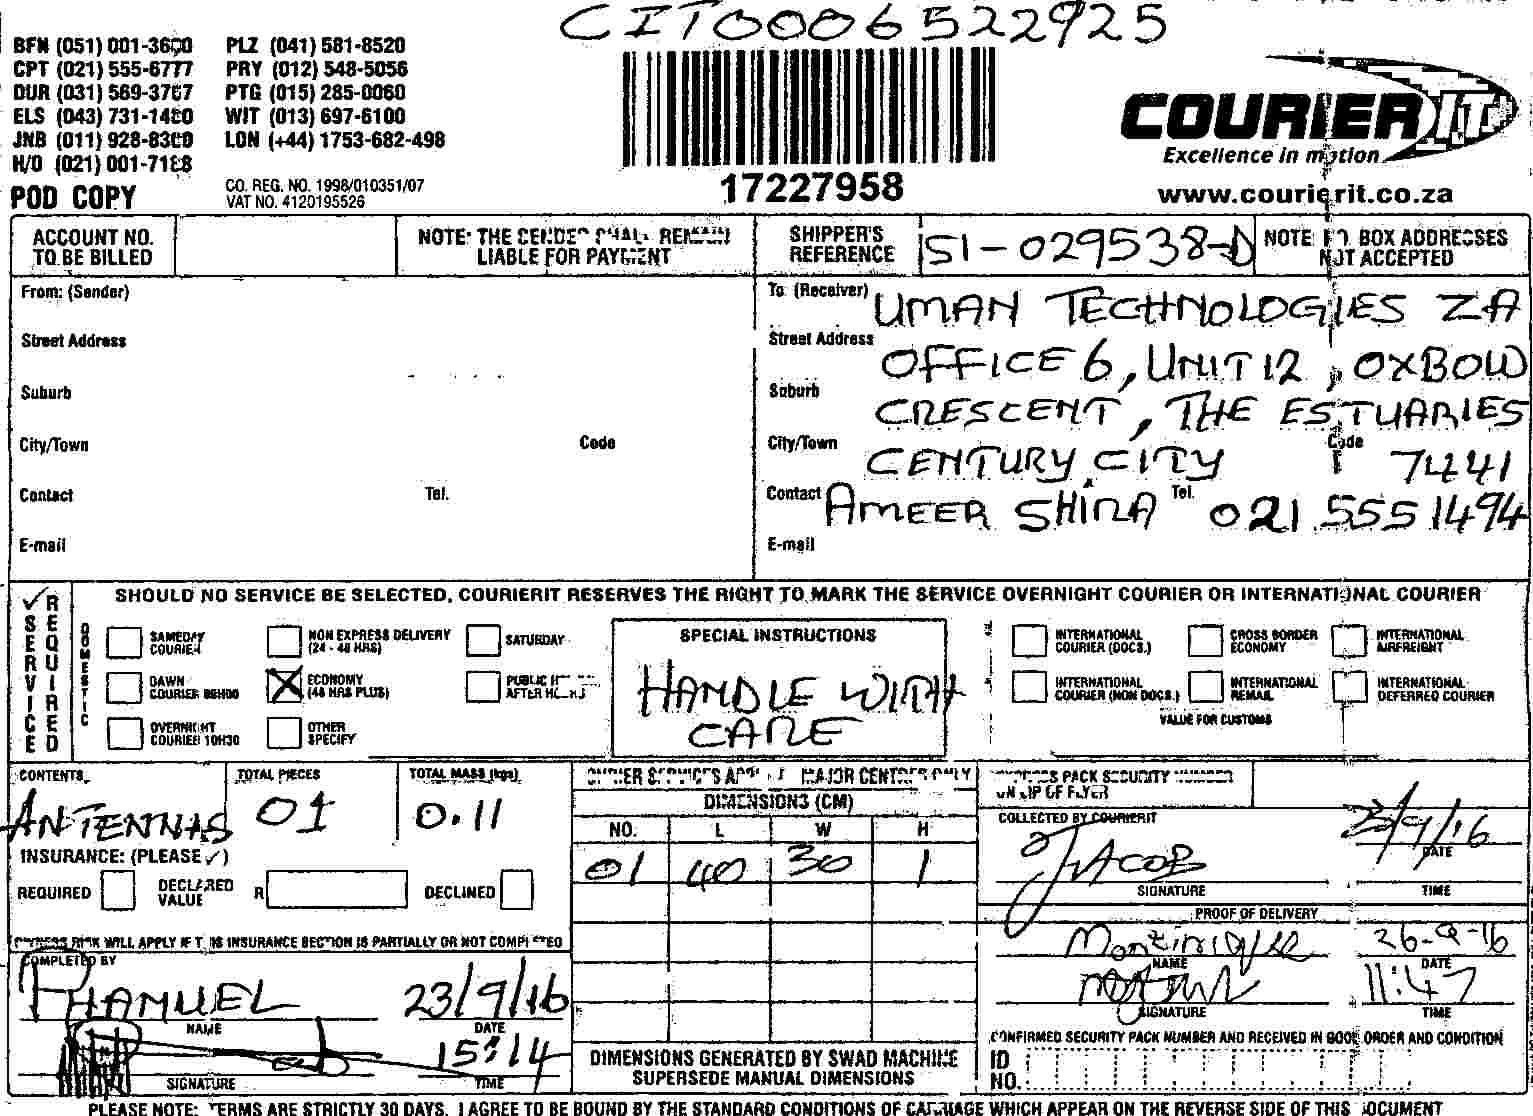 CIT0006522925
BFN (051) 001-3600 PLZ (041) 581-8520
CPT (021) 555-6777 PRY (012) 548-5056
DUR (031) 569-3767 PTG (015) 285-0060
ELS (043) 731-1480 WIT (013) 697-6100
JNB (011) 928-8300 LON (+44) 1753-682-498
H/O (021) 001-7188
POD COPY
CO. REG. NO. 1998/010351/07
VAT NO. 4120195526
17227958
COURIER IT
Excellence in motion
www.courierit.co.za
ACCOUNT NO. TO BE BILLED
NOTE: THE SENDER SHALL REMAIN LIABLE FOR PAYMENT
SHIPPER'S REFERENCE SI-029538-D
NOTE: P.O. BOX ADDRESSES NOT ACCEPTED
From: (Sender)
Street Address
Suburb
City/Town Code
Contact Tel.
E-mail
To: (Receiver) UMAN TECHNOLOGIES ZA
Street Address OFFICE 6, UNIT 12, OXBOW
Suburb CRESCENT, THE ESTUARIES
City/Town CENTURY CITY Code 7441
Contact AMEER SHIRA Tel. 021 555 1494
E-mail
✓ SERVICE REQUIRED
DOMESTIC
SHOULD NO SERVICE BE SELECTED, COURIERIT RESERVES THE RIGHT TO MARK THE SERVICE OVERNIGHT COURIER OR INTERNATIONAL COURIER
SAMEDAY COURIER
NON EXPRESS DELIVERY (24 - 48 HRS)
SATURDAY
DAWN COURIER 08H00
ECONOMY (48 HRS PLUS)
PUBLIC AFTER
OVERNIGHT COURIER 10H30
OTHER SPECIFY
SPECIAL INSTRUCTIONS
HANDLE WITH
CARE
INTERNATIONAL COURIER (DOCS.)
CROSS BORDER ECONOMY
INTERNATIONAL AIRFREIGHT
INTERNATIONAL COURIER (NON DOCS.)
INTERNATIONAL REMAIL
INTERNATIONAL DEFERRED COURIER
VALUE FOR CUSTOMS
CONTENTS ANTENNAS
TOTAL PIECES 01
TOTAL MASS (kgs) 0.11
INSURANCE: (PLEASE ✓)
REQUIRED DECLARED VALUE R DECLINED
RISK WILL APPLY IF THIS INSURANCE SECTION IS PARTIALLY OR NOT COMPLETED
COMPLETED BY
PHAMUEL 23/9/16
NAME DATE
15:14
SIGNATURE TIME
OTHER SERVICES MAJOR CENTRES ONLY
DIMENSIONS (CM)
NO. L W H
01 40 30 1
DIMENSIONS GENERATED BY SWAD MACHINE
SUPERSEDE MANUAL DIMENSIONS
EXPRESS PACK SECURITY NUMBER
ON LIP OF FLYER
COLLECTED BY COURIERIT
JACOB 23/9/16
DATE
SIGNATURE TIME
PROOF OF DELIVERY
26-9-16
NAME DATE
11:47
SIGNATURE TIME
CONFIRMED SECURITY PACK NUMBER AND RECEIVED IN GOOD ORDER AND CONDITION
ID NO.
PLEASE NOTE: TERMS ARE STRICTLY 30 DAYS. I AGREE TO BE BOUND BY THE STANDARD CONDITIONS OF CARRIAGE WHICH APPEAR ON THE REVERSE SIDE OF THIS DOCUMENT